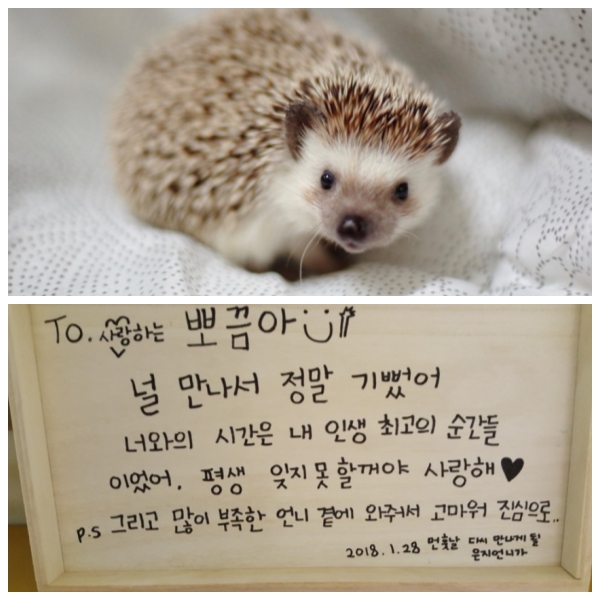 To. 사랑하는 뽀끔아
널 만나서 정말 기뻤어
너와의 시간은 내 인생 최고의 순간들
이었어, 평생 잊지 못할꺼야 사랑해♥
p.s 그리고 많이 부족한 언니 곁에 와줘서 고마워 진심으로..
2018.1.28 먼훗날 다시 만나게 될
은지언니가